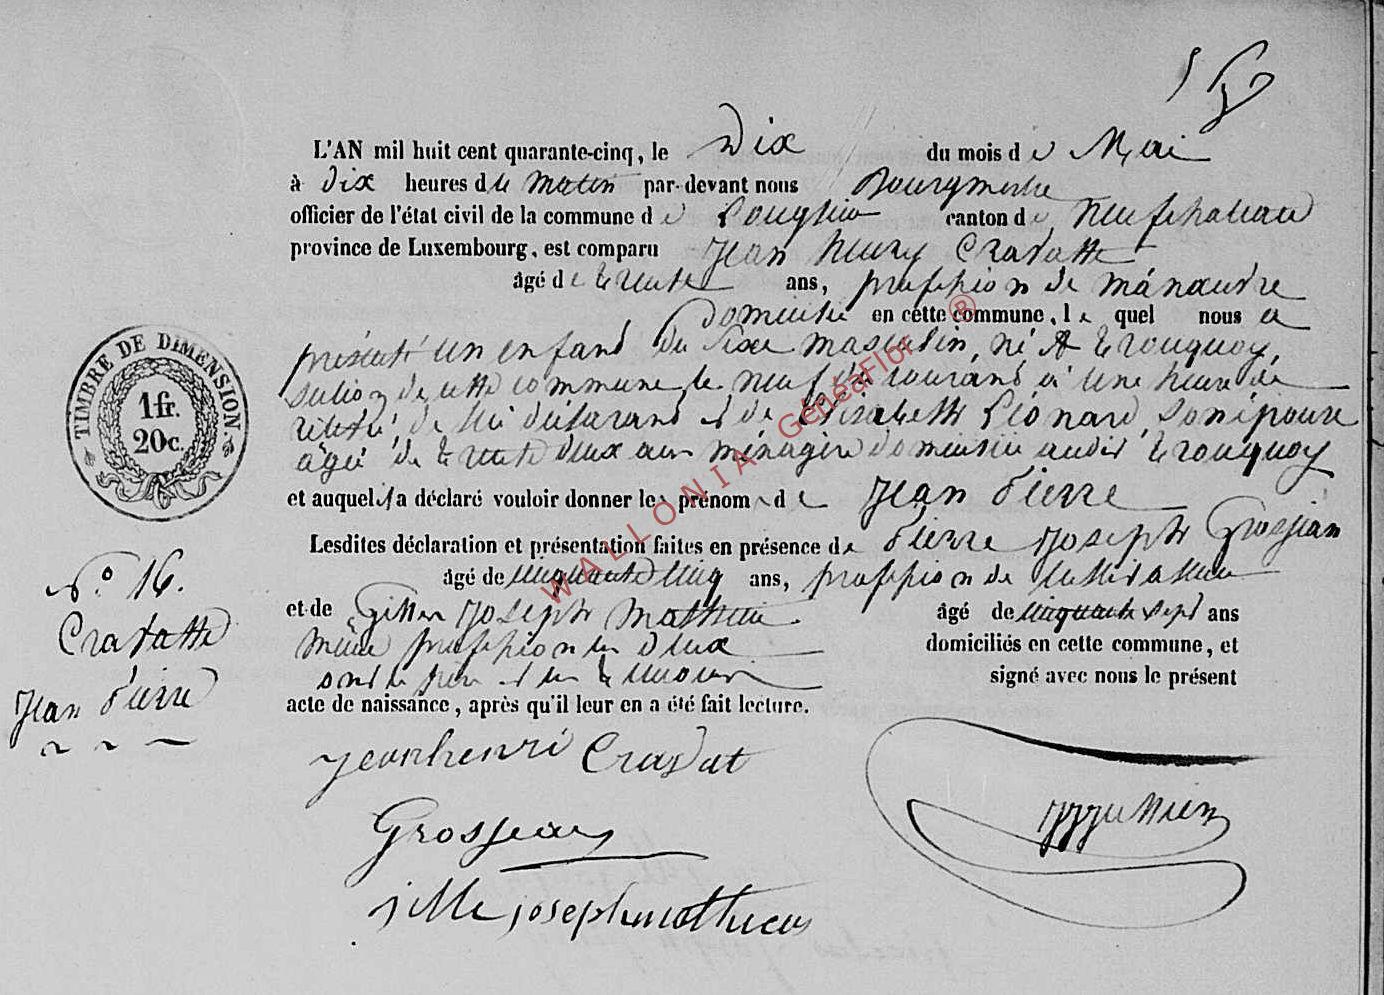 L'AN mil huit cent quarante-cinq, le Dix du mois de Mai
à Dix heures du Matin par-devant nous Bourgmestre
officier de l'état civil de la commune de Longlier canton de Neufchateau
province de Luxembourg, est comparu Jean henry Cravatte
âgé de trente ans, profession de manœuvre
Domicilié en cette commune, le quel nous a
présenté un enfant du sexe masculin, né A tronquoy,
section de cette commune le neuf du courant à une heure de
relevé, de lui déclarant et de Elisabeth Léonard, son épouse
agée de trente deux ans ménagère domiciliée audit tronquoy
et auquel il a déclaré vouloir donner les prenom de Jean Pierre
Lesdites déclaration et présentation faites en présence de Pierre Joseph Grosjean
âgé de cinquante cinq ans, profession de cultivateur
et de Gille Joseph Mathieu âgé de cinquante sept ans
même profession les deux domiciliés en cette commune, et
ont le père et les témoins signé avec nous le présent
acte de naissance, après qu'il leur en a été fait lecture.
TIMBRE DE DIMENSION
1 fr.
20c.
N.° 16.
Cravatte
Jean Pierre
jeanhenri Cravat
Grosjean
jille joseph mathieu
WALLONIA GénéaFlor ®